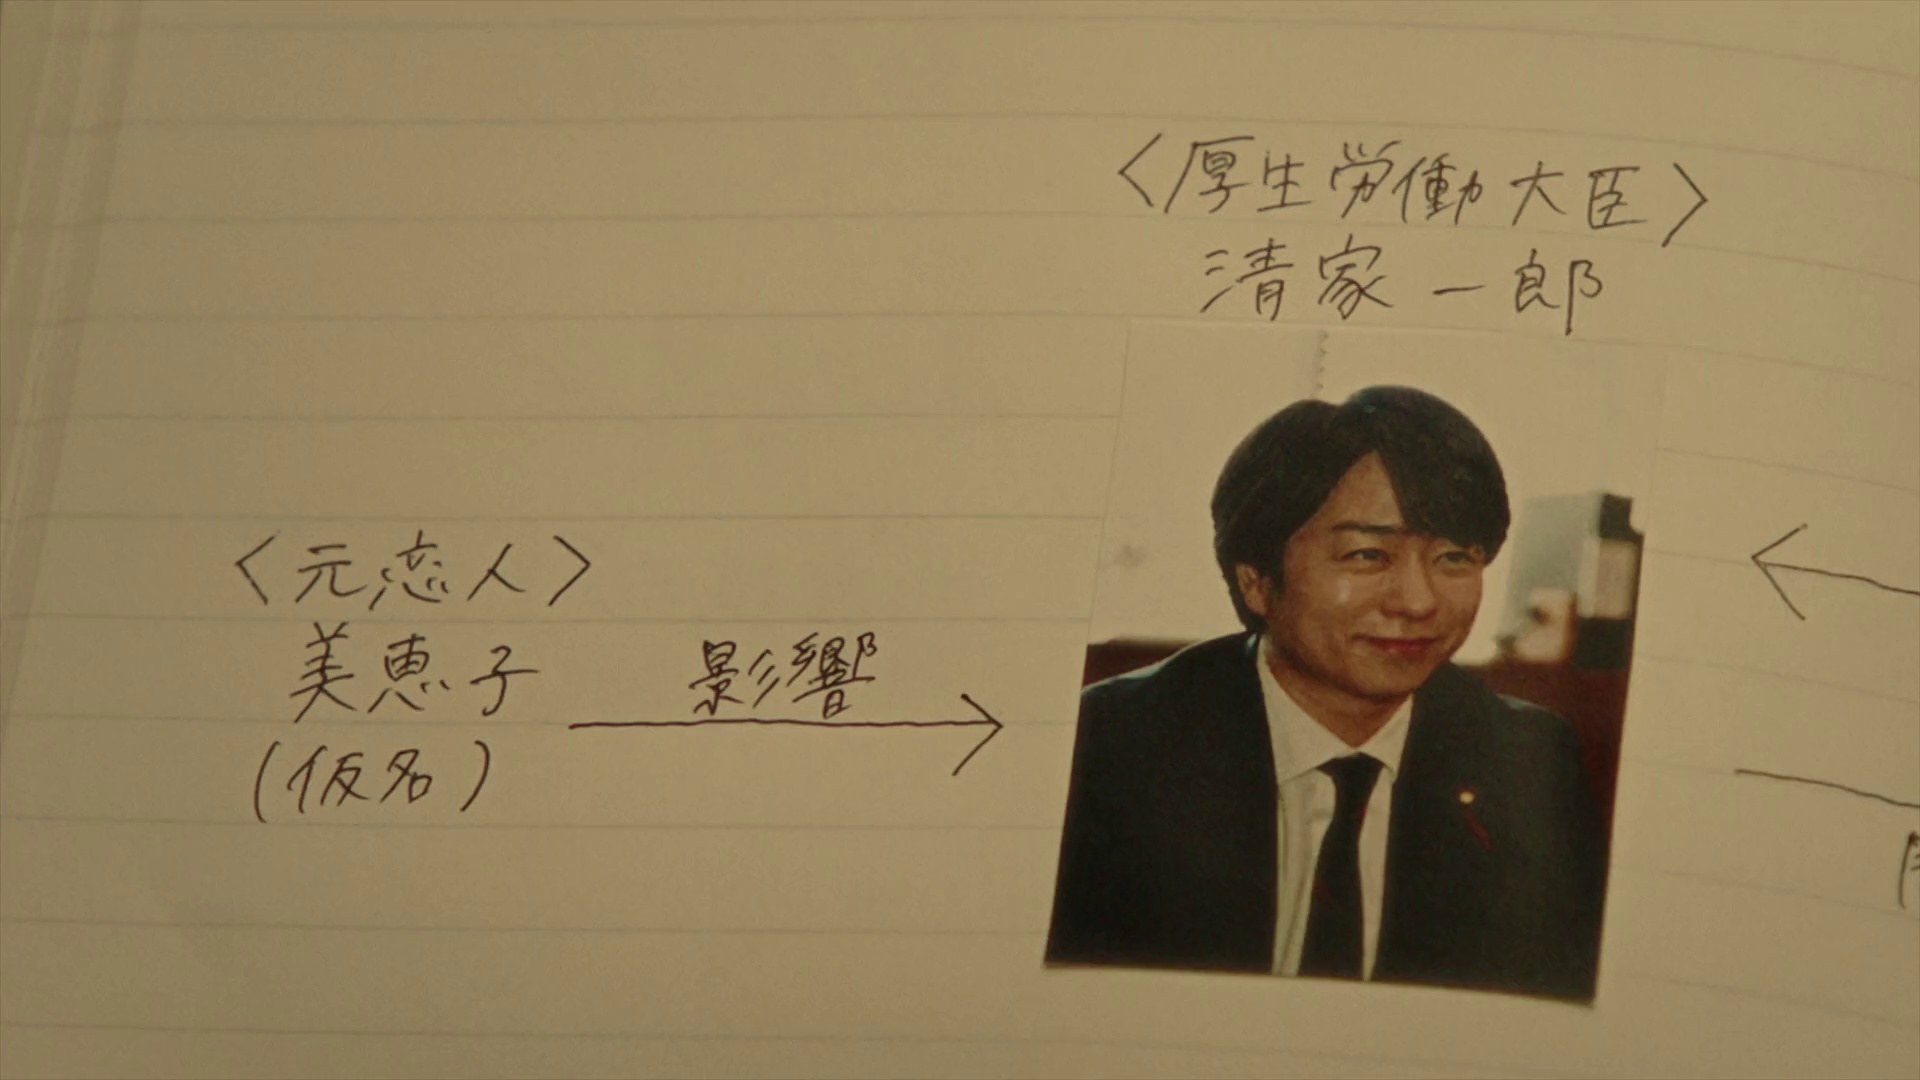 〈厚生労働大臣〉
清家一郎
〈元恋人〉
美恵子
(仮名)
影響